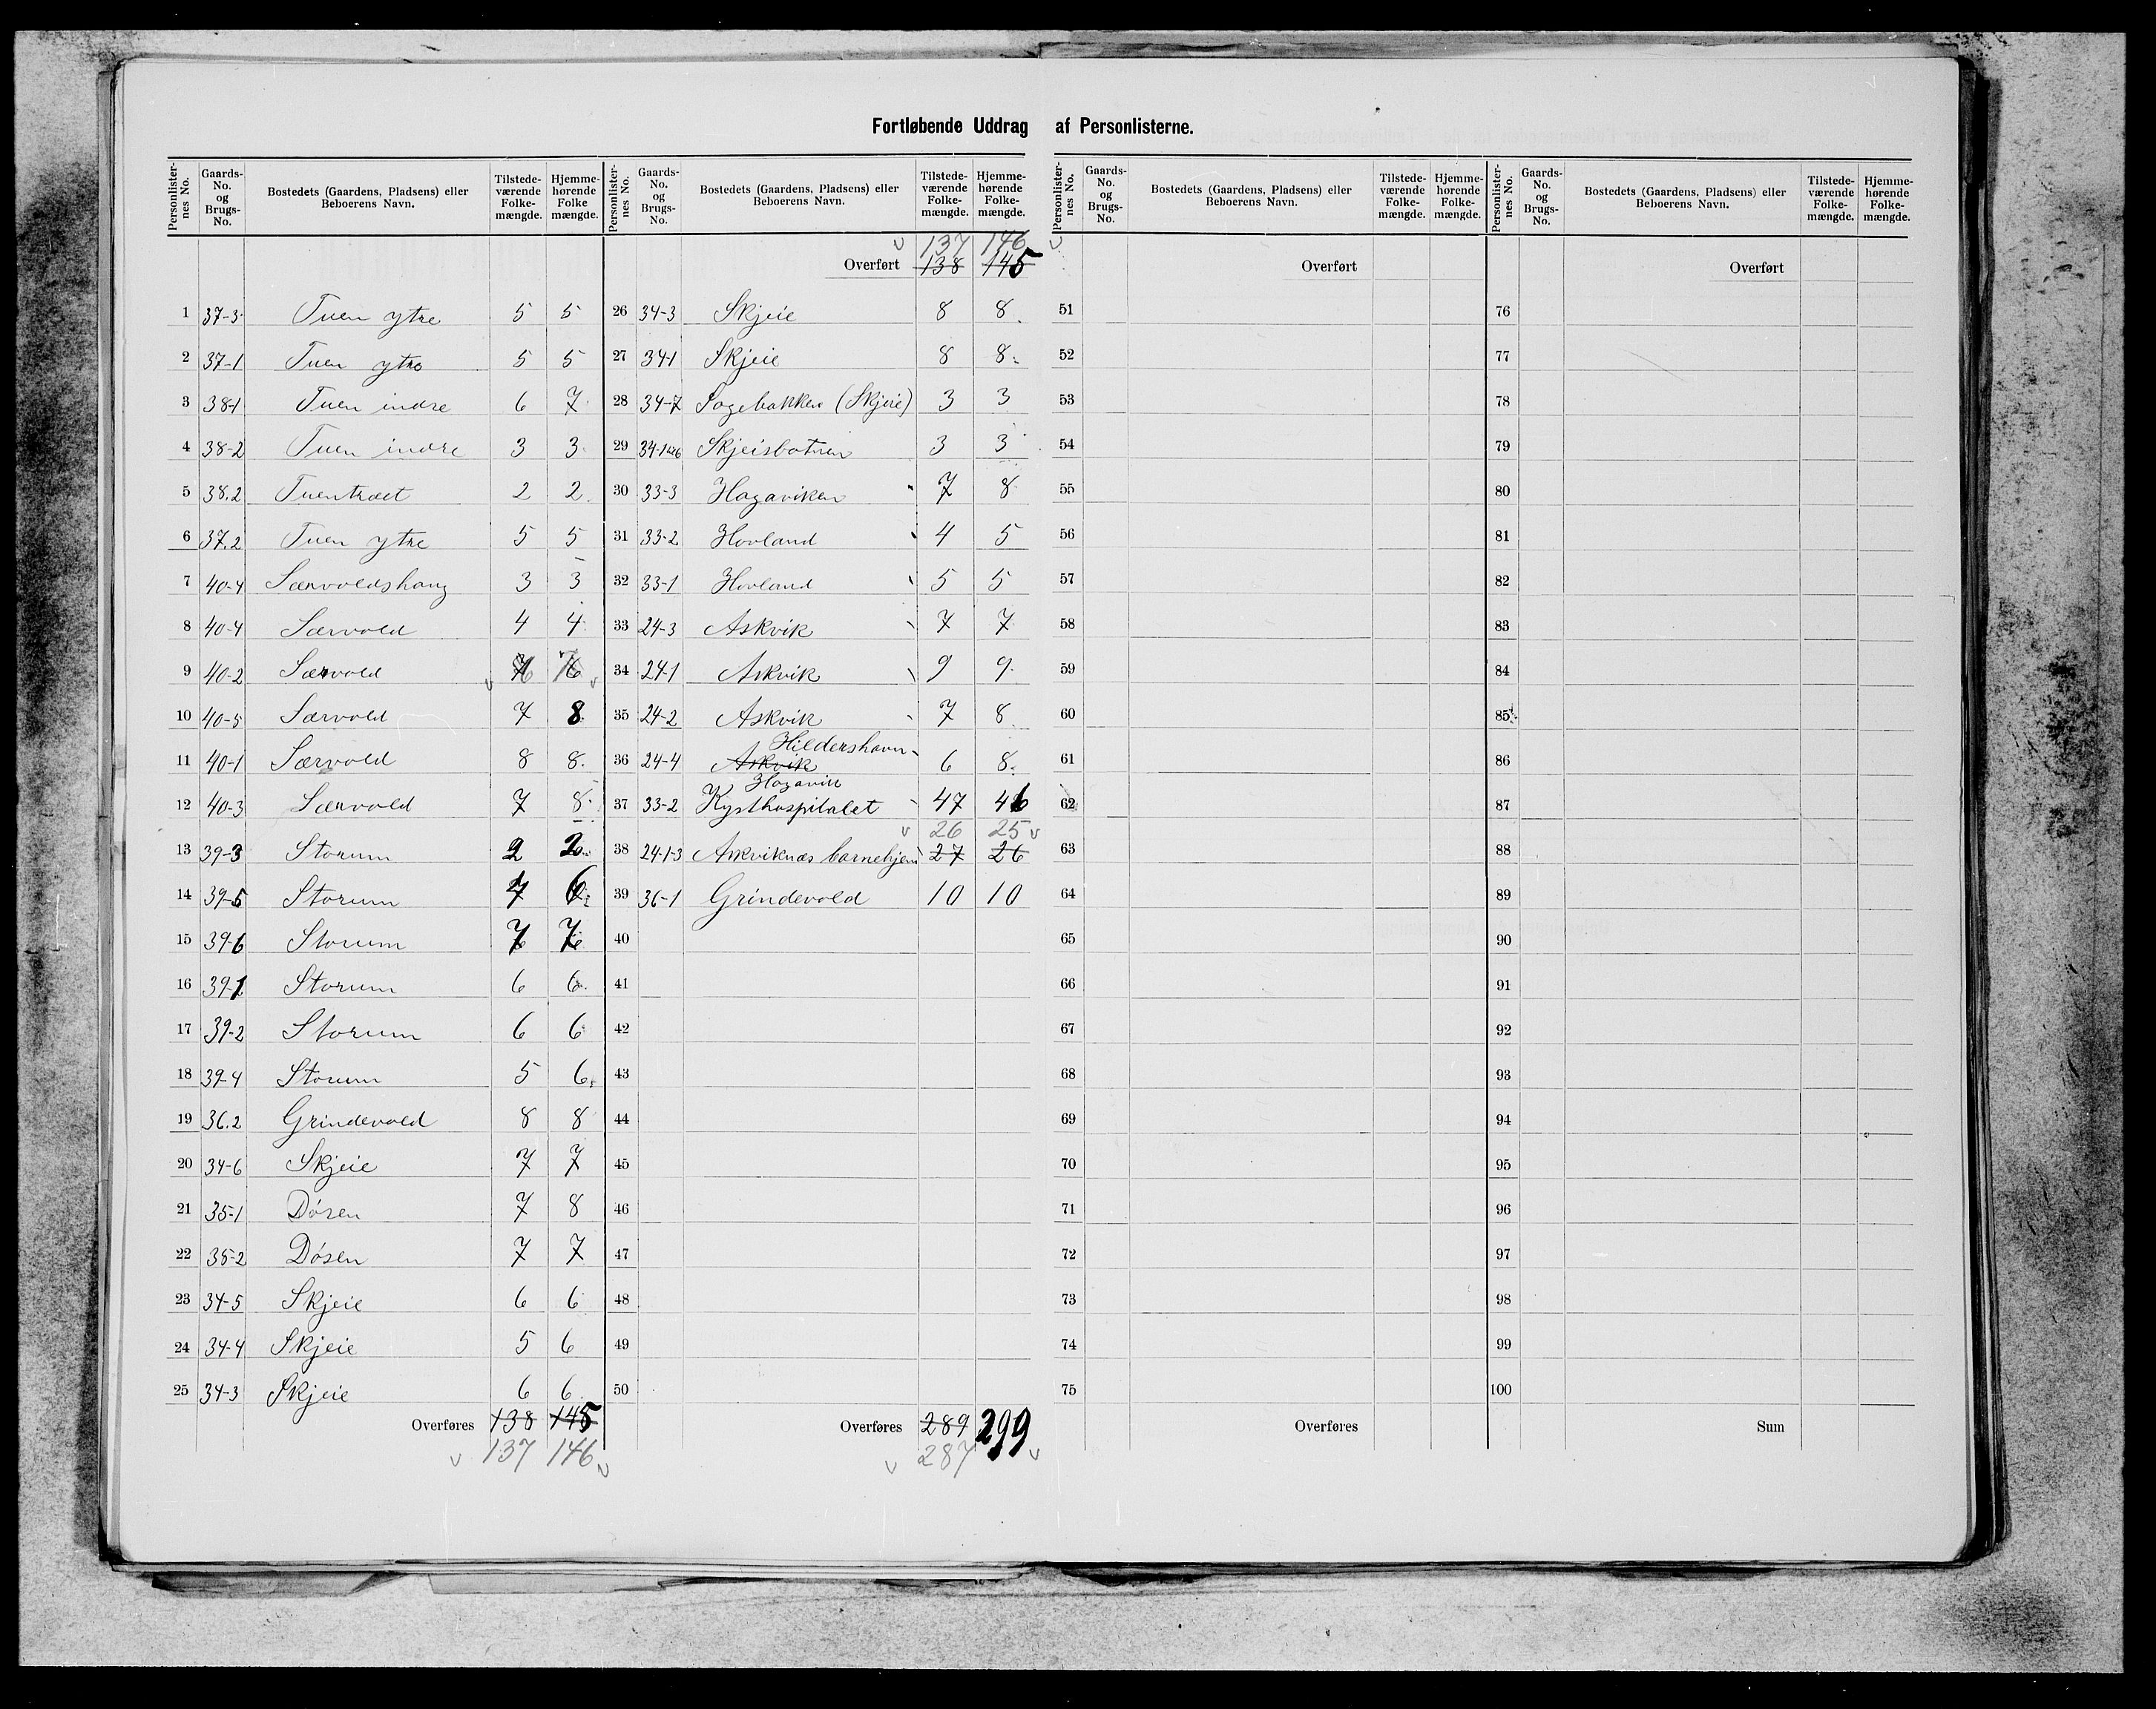 Fortløbende Uddrag af Personlisterne.
Personlister-nes No. | Gaards-No. og Brugs-No. | Bostedets (Gaardens, Pladsens) eller Beboerens Navn. | Tilstede-værende Folke-mængde. | Hjemme-hørende Folke mængde.
1 37-3 Tuen ytre 5 5
2 37-1 Tuen ytre 5 5
3 38-1 Tuen indre 6 7
4 38-2 Tuen indre 3 3
5 38.2 Tuentræet 2 2
6 37.2 Tuen ytre 5 5
7 40-4 Særvoldshaug 3 3
8 40-4 Særvold 4 4
9 40-2 Særvold
10 40-5 Særvold 7 8
11 40-1 Særvold 8 8
12 40-3 Særvold 7 8
13 39-3 Storum 2 2
14 39-5 Storum 7 6
15 39-6 Storum 7 7
16 39-1 Storum 6 6
17 39-2 Storum 6 6
18 39-4 Storum 5 6
19 36.2 Grindevold 8 8
20 34-6 Skjeie 7 7
21 35-1 Døsen 7 8
22 35-2 Døsen 7 7
23 34-5 Skjeie 6 6
24 34-4 Skjeie 5 6
25 34-3 Skjeie 6 6
Overføres 138 145
137 146
Personlister-nes No. | Gaards-No. og Brugs-No. | Bostedets (Gaardens, Pladsens) eller Beboerens Navn. | Tilstede-værende Folke-mængde. | Hjemme-hørende Folke-mængde.
137 146
Overført 138 145
26 34-3 Skjeie 8 8
27 34-1 Skjeie 8 8
28 34-7 Sagebakken (Skjeie) 3 3
29 Skjeisbotnen 3 3
30 33-3 Hagaviken 7 8
31 33-2 Hovland 4 5
32 33-1 Hovland 5 5
33 24-3 Askvik 7 7
34 24-1 Askvik 9 9
35 24-2 Askvik 7 8
Hildershavn
36 24-4 Askvik 6 8
Hagavik
37 33-2 Kysthospitalet 47 46
26 25
38 24-1-3 Askviknæs barnehjem 27 26
39 36-1 Grindevold 10 10
40
41
42
43
44
45
46
47
48
49
50
Overføres 289 299
287
Personlister-nes No. | Gaards-No. og Brugs-No. | Bostedets (Gaardens, Pladsens) eller Beboerens Navn. | Tilstede-værende Folke-mængde. | Hjemme-hørende Folke-mængde.
Overført
51
52
53
54
55
56
57
58
59
60
61
62
63
64
65
66
67
68
69
70
71
72
73
74
75
Overføres
Personlister-nes No. | Gaards-No. og Brugs-No. | Bostedets (Gaardens, Pladsens) eller Beboerens Navn. | Tilstede-værende Folke-mængde. | Hjemme-hørende Folke-mængde.
Overført
76
77
78
79
80
81
82
83
84
85
86
87
88
89
90
91
92
93
94
95
96
97
98
99
100
Sum